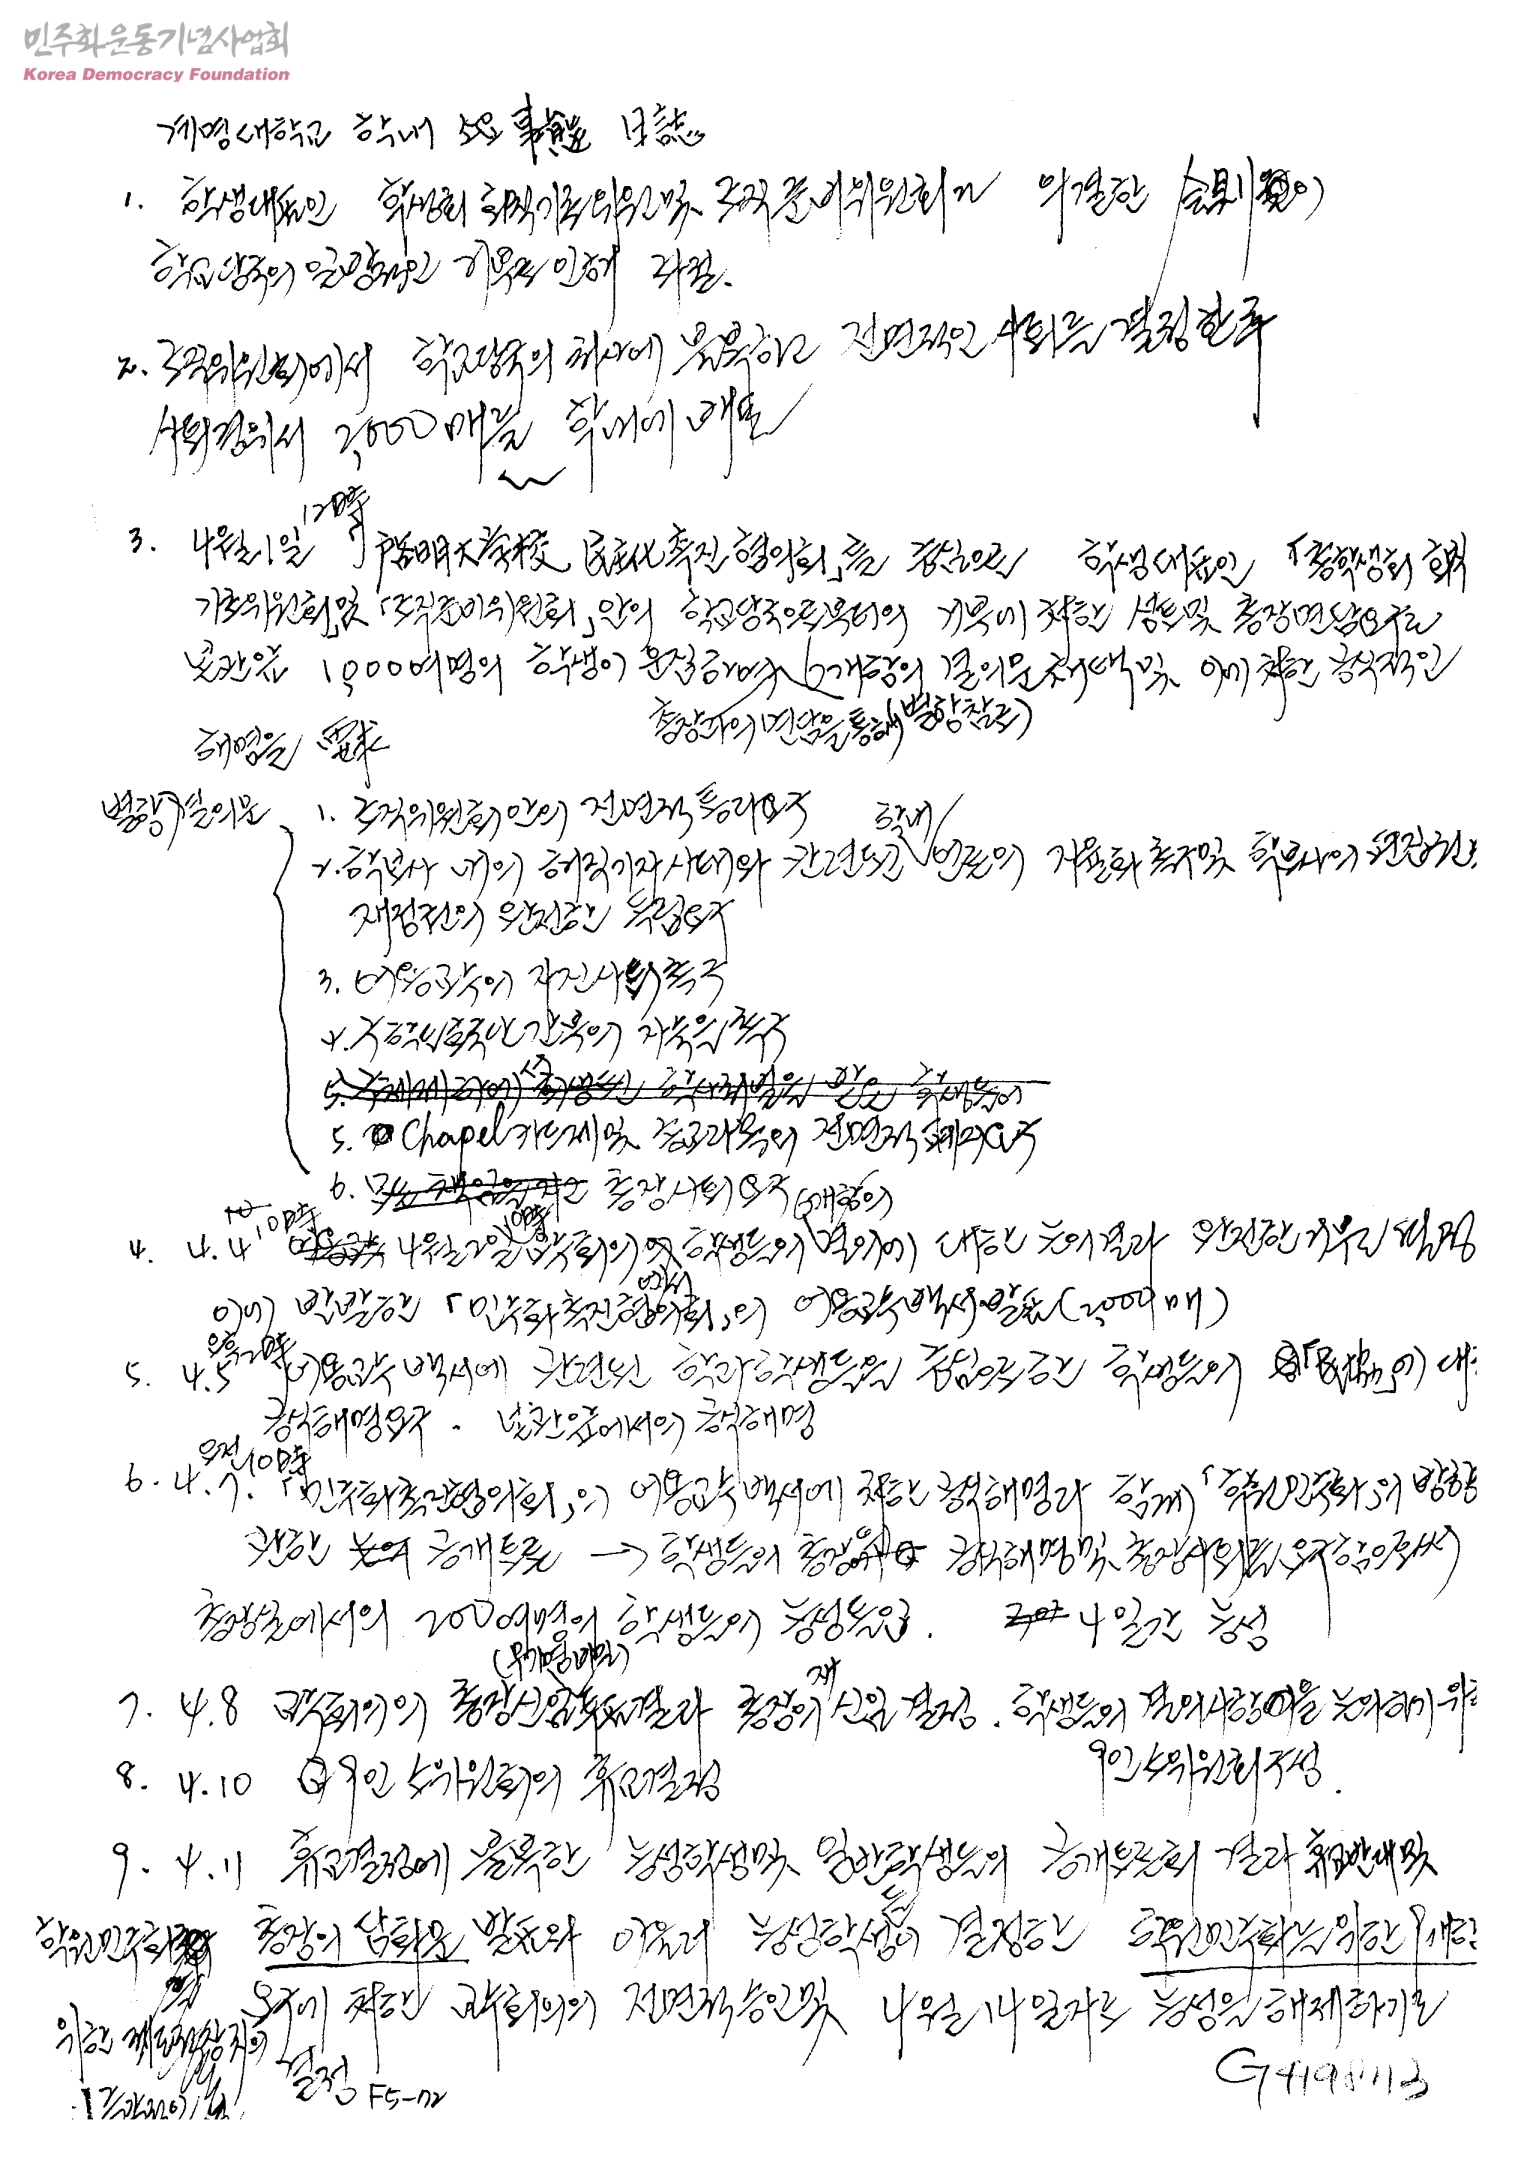 민주화운동기념사업회
Korea Democracy Foundation
계명대학교 학내 事態 日誌
1. 학생대표인 학생회 회칙기초위원및 조직준비위원회가 의결한 会則 이
학교당국의 일방적인 거부로 인해 좌절.
2. 조직위원회에서 학교당국의 처사에 불복하고 전면적인 사퇴를 결정한 후
사퇴결의서 2,000매를 학내에 배포
3. 4월 1일 12時 「啓明大学校 民主化 촉진협의회」를 중심으로 학생대표인 「총학생회 회칙
기초위원회」및 「조직준비위원회」안의 학교당국으로부터의 거부에 対한 성토및 총장면담요구로
본관앞 1,000여명의 학생이 운집하여 6개항의 결의문채택및 이에 対한 공식적인
총장과의 면담을 통해 (별항참조)
해명을 要求
별항 결의문
1. 조직위원회안의 전면적 통과요구
2. 학보사 내의 해직기자사태와 관련된 학내 언론의 자율화 촉구및 학보사의
재정권의 완전한 독립요구
3. 어용교수의 자진사퇴촉구
4. 간부의 촉구
5. Chapel 및 종교과목의 전면적 폐지요구
6. 총장사퇴요구
4. 4.4 10時 4월 2일 10時 교수회의의 학생들의 6개항의 결의에 대한 논의결과 완전한 거부로 결정
이에 반발한 「민주화촉진협의회」의 어용교수백서발표(2,000매)
5. 4.5 오후2時 어용교수백서에 관련된 학과학생들을 중심으로한 학생들의 「民協」의 대
공식해명요구. 본관앞에서의 공식해명
6. 4.7. 오전10時 「민주화촉진협의회」의 어용교수백서에 対한 공식해명과 함께 「학원민주화」의 방향
관한 공개토론 → 학생들의 총장 공식해명및 총장사퇴를 요구함으로써
총장실에서의 200여명의 학생들의 농성돌입. 4일간 농성
(무기명비밀)
7. 4.8 교수회의의 총장신임투표결과 총장의 재신임 결정. 학생들의 결의사항을 논의하기 위
9인소위원회구성.
8. 4.10 9인 소위원회의 휴교결정
9. 4.11 휴교결정에 불복한 농성학생및 일반학생들의 공개토론회 결과 휴교반대및
학원민주화 총장의 담화문 발표와 아울러 농성학생들이 결정한 학원민주화를 위한 9개항
요구에 対한 교수회의의 전면적승인및 4월 14일자로 농성을 해제하기로
위한 결정
F5-72
G4198113